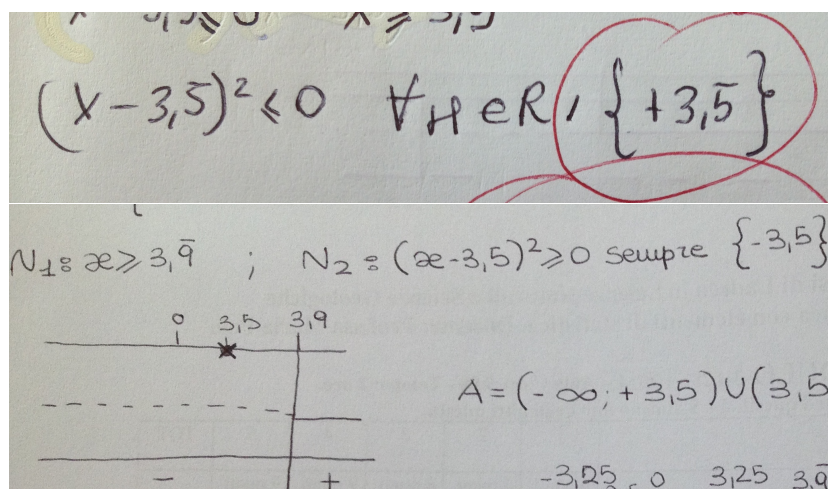 (x-3,5̄)² ≤ 0 ∀ x ∈ R, {+3,5̄}
N₁: x ≥ 3,9̄ ; N₂: (x-3,5)² ≥ 0 sempre {-3,5}
0 3,5 3,9
A = (-∞; +3,5) ∪ (3,5
- +
-3,25 0 3,25 3,9̄